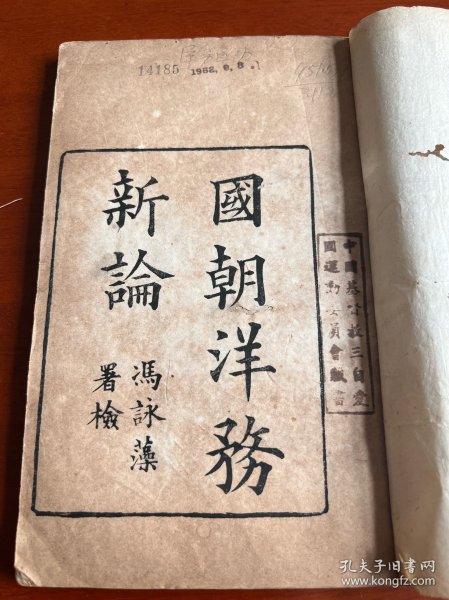 14185 1962.9.8.
國朝洋務
新論
馮詠藻
署檢
中國基督教三自愛
國運動委員會藏書
孔夫子旧书网
www.kongfz.com